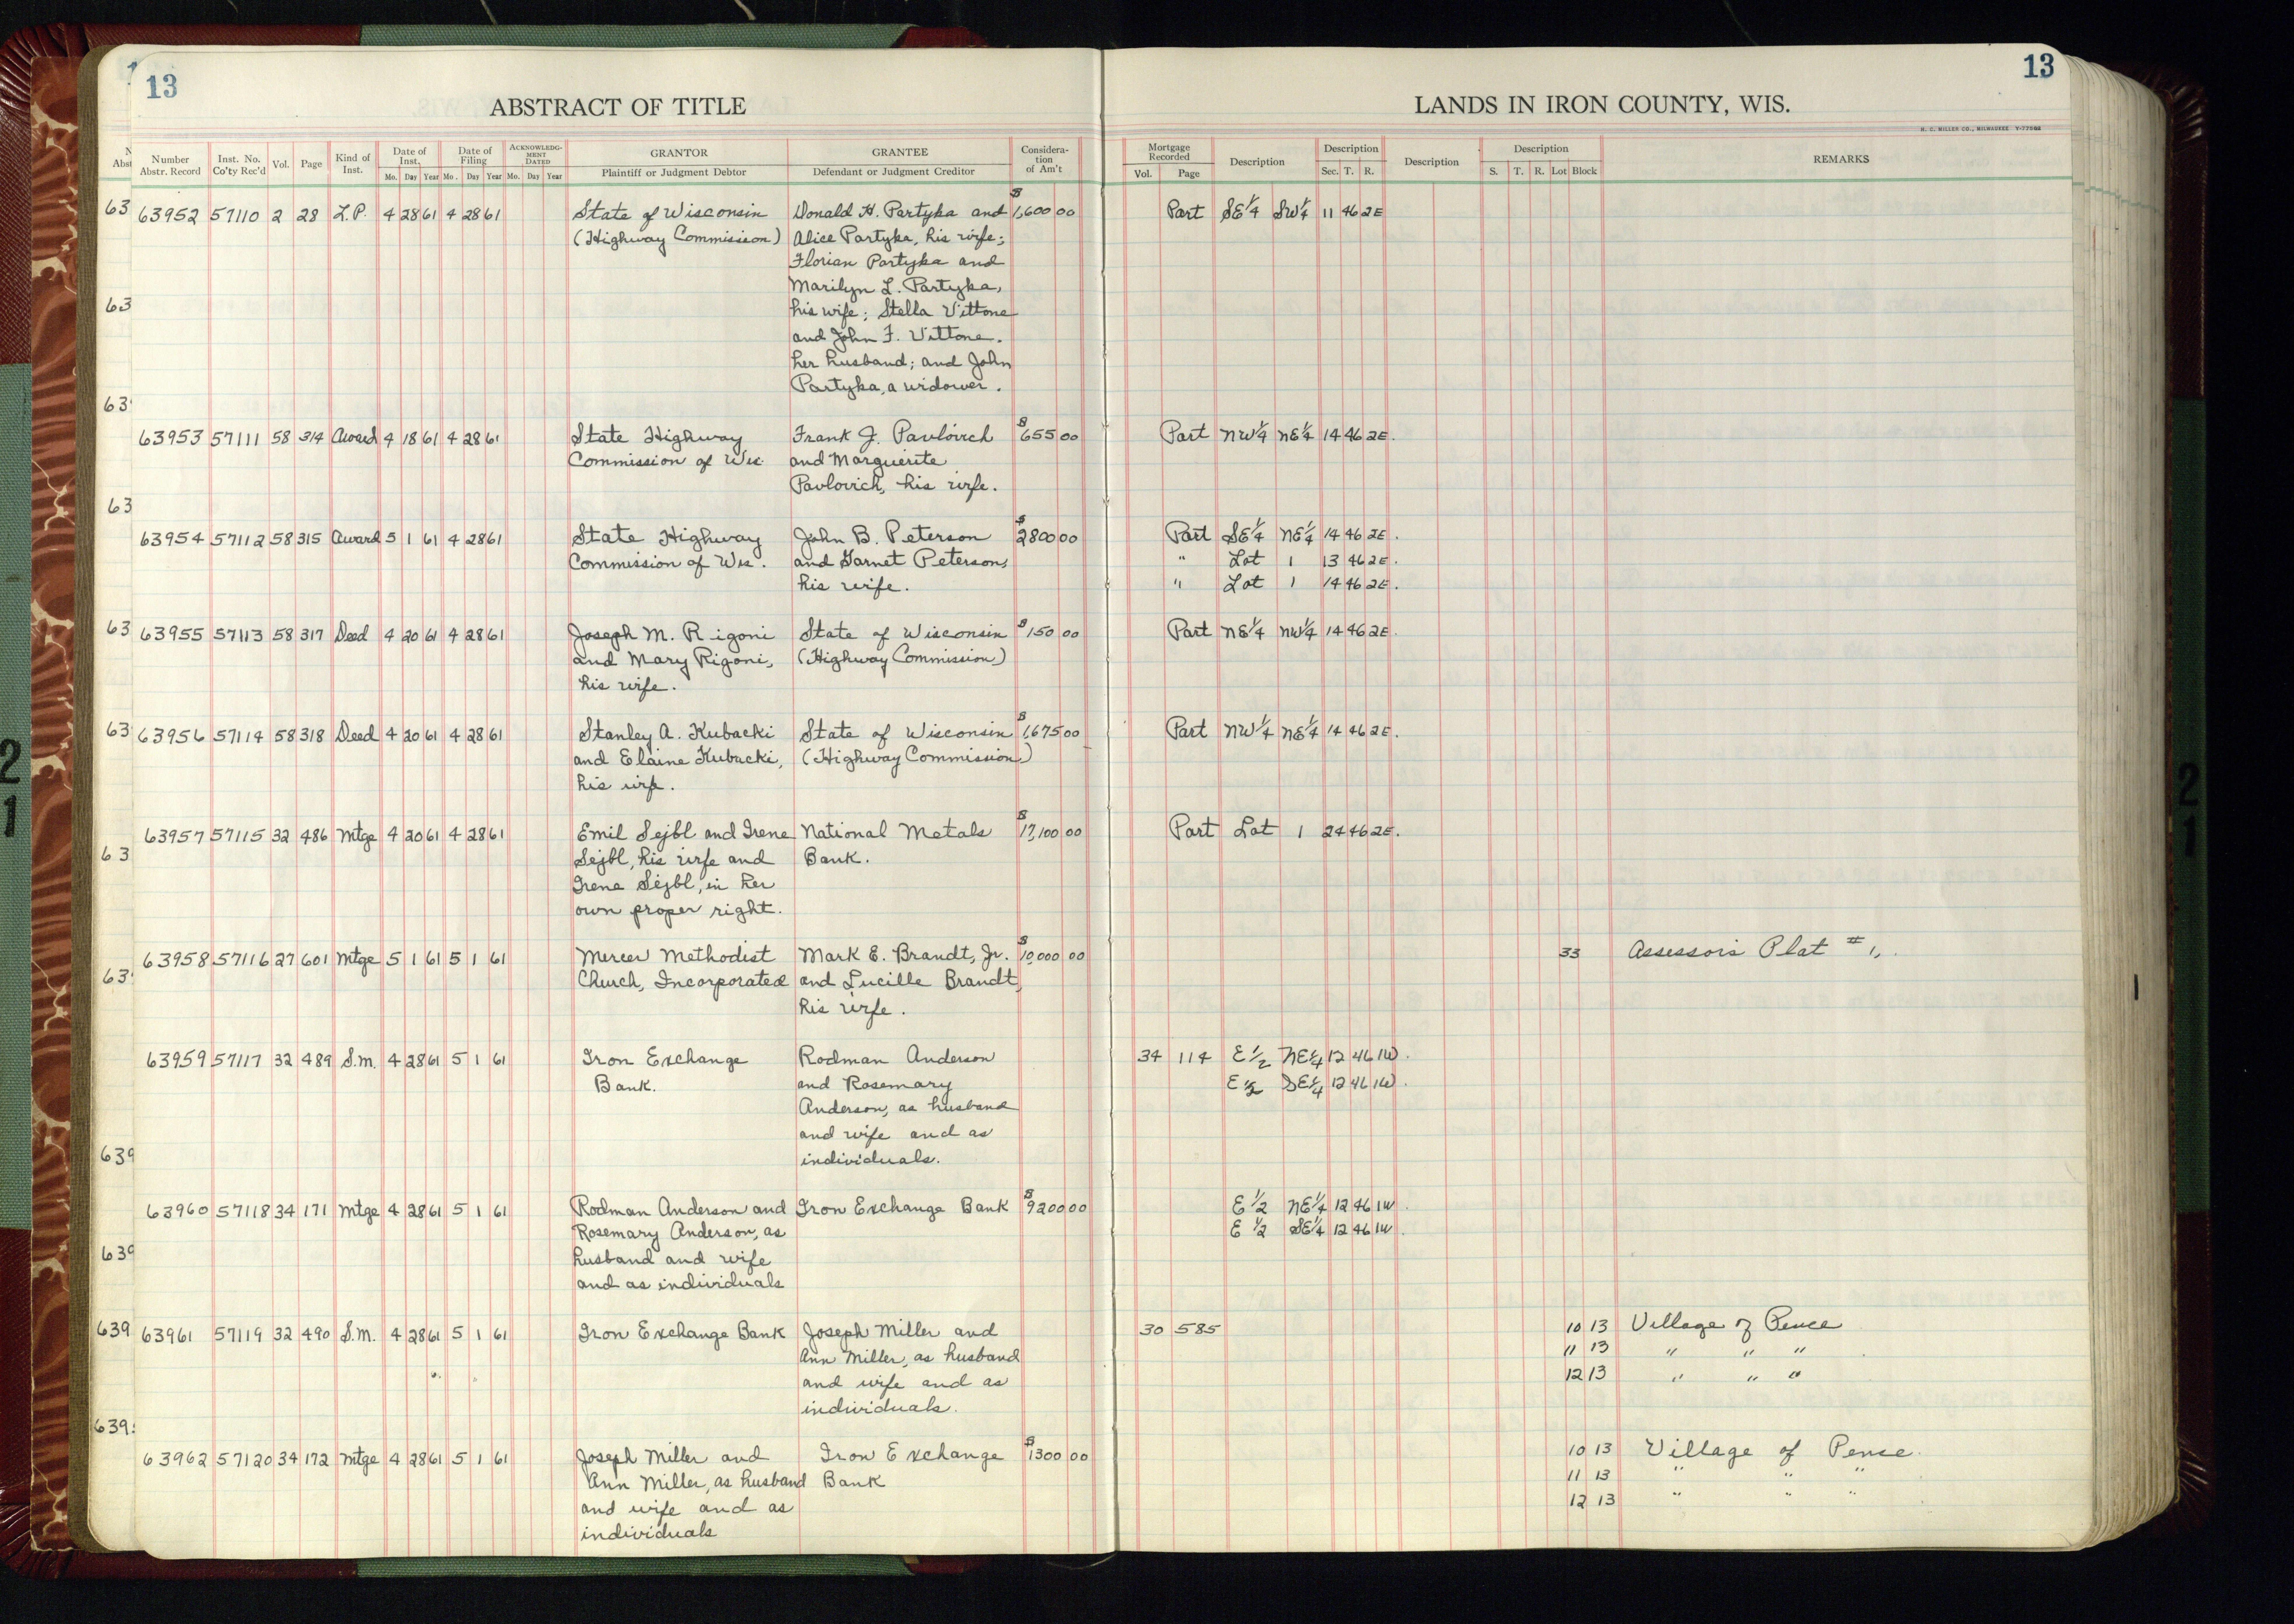 13
ABSTRACT OF TITLE
Number Abstr. Record Inst. No. Co'ty Rec'd Vol. Page Kind of Inst. Date of Inst. Mo. Day Year Date of Filing Mo. Day Year ACKNOWLEDG-MENT DATED Mo. Day Year GRANTOR Plaintiff or Judgment Debtor GRANTEE Defendant or Judgment Creditor Considera-tion of Am't
63952 57110 2 28 L.P. 4 28 61 4 28 61 State of Wisconsin Donald H. Partyka and $1,600 00
(Highway Commission) Alice Partyka, his wife;
Florian Partyka and
Marilyn L. Partyka,
his wife; Stella Vittone
and John F. Vittone.
her husband; and John
Partyka, a widower.
63953 57111 58 314 Award 4 18 61 4 28 61 State Highway Frank J. Pavlovich $655 00
Commission of Wis. and Marguerite
Pavlovich, his wife.
63954 57112 58 315 Award 5 1 61 4 28 61 State Highway John B. Peterson $2800 00
Commission of Wis. and Garnet Peterson,
his wife.
63955 57113 58 317 Deed 4 20 61 4 28 61 Joseph M. Rigoni State of Wisconsin $150 00
and Mary Rigoni, (Highway Commission)
his wife.
63956 57114 58 318 Deed 4 20 61 4 28 61 Stanley A. Kubacki State of Wisconsin $1,675 00
and Elaine Kubacki, (Highway Commission)
his wife.
63957 57115 32 486 Mtge 4 20 61 4 28 61 Emil Sejbl and Irene National Metals $17,100 00
Sejbl, his wife and Bank.
Irene Sejbl, in her
own proper right.
63958 57116 27 601 Mtge 5 1 61 5 1 61 Mercer Methodist Mark E. Brandt, Jr. $10,000 00
Church, Incorporated and Lucille Brandt,
his wife.
63959 57117 32 489 S.M. 4 28 61 5 1 61 Iron Exchange Rodman Anderson
Bank. and Rosemary
Anderson, as husband
and wife and as
individuals.
63960 57118 34 171 Mtge 4 28 61 5 1 61 Rodman Anderson and Iron Exchange Bank $9200 00
Rosemary Anderson, as
husband and wife
and as individuals
63961 57119 32 490 S.M. 4 28 61 5 1 61 Iron Exchange Bank Joseph Miller and
Ann Miller, as husband
and wife and as
individuals.
63962 57120 34 172 Mtge 4 28 61 5 1 61 Joseph Miller and Iron Exchange $1300 00
Ann Miller, as husband Bank
and wife and as
individuals
13
LANDS IN IRON COUNTY, WIS.
H. C. MILLER CO., MILWAUKEE
Mortgage Recorded Vol. Page Description Description Sec. T. R. Description Description S. T. R. Lot Block REMARKS
Part SE¼ SW¼ 11 46 2E
Part NW¼ NE¼ 14 46 2E.
Part SE¼ NE¼ 14 46 2E.
" Lot 1 13 46 2E.
" Lot 1 14 46 2E.
Part NE¼ NW¼ 14 46 2E.
Part NW¼ NE¼ 14 46 2E.
Part Lot 1 24 46 2E.
33 Assessor's Plat #1,.
34 114 E½ NE¼ 12 46 1W.
E½ SE¼ 12 46 1W.
E½ NE¼ 12 46 1W.
E½ SE¼ 12 46 1W.
30 585 10 13 Village of Pence
11 13 " " "
12 13 " " "
10 13 Village of Pence.
11 13 " " "
12 13 " " "